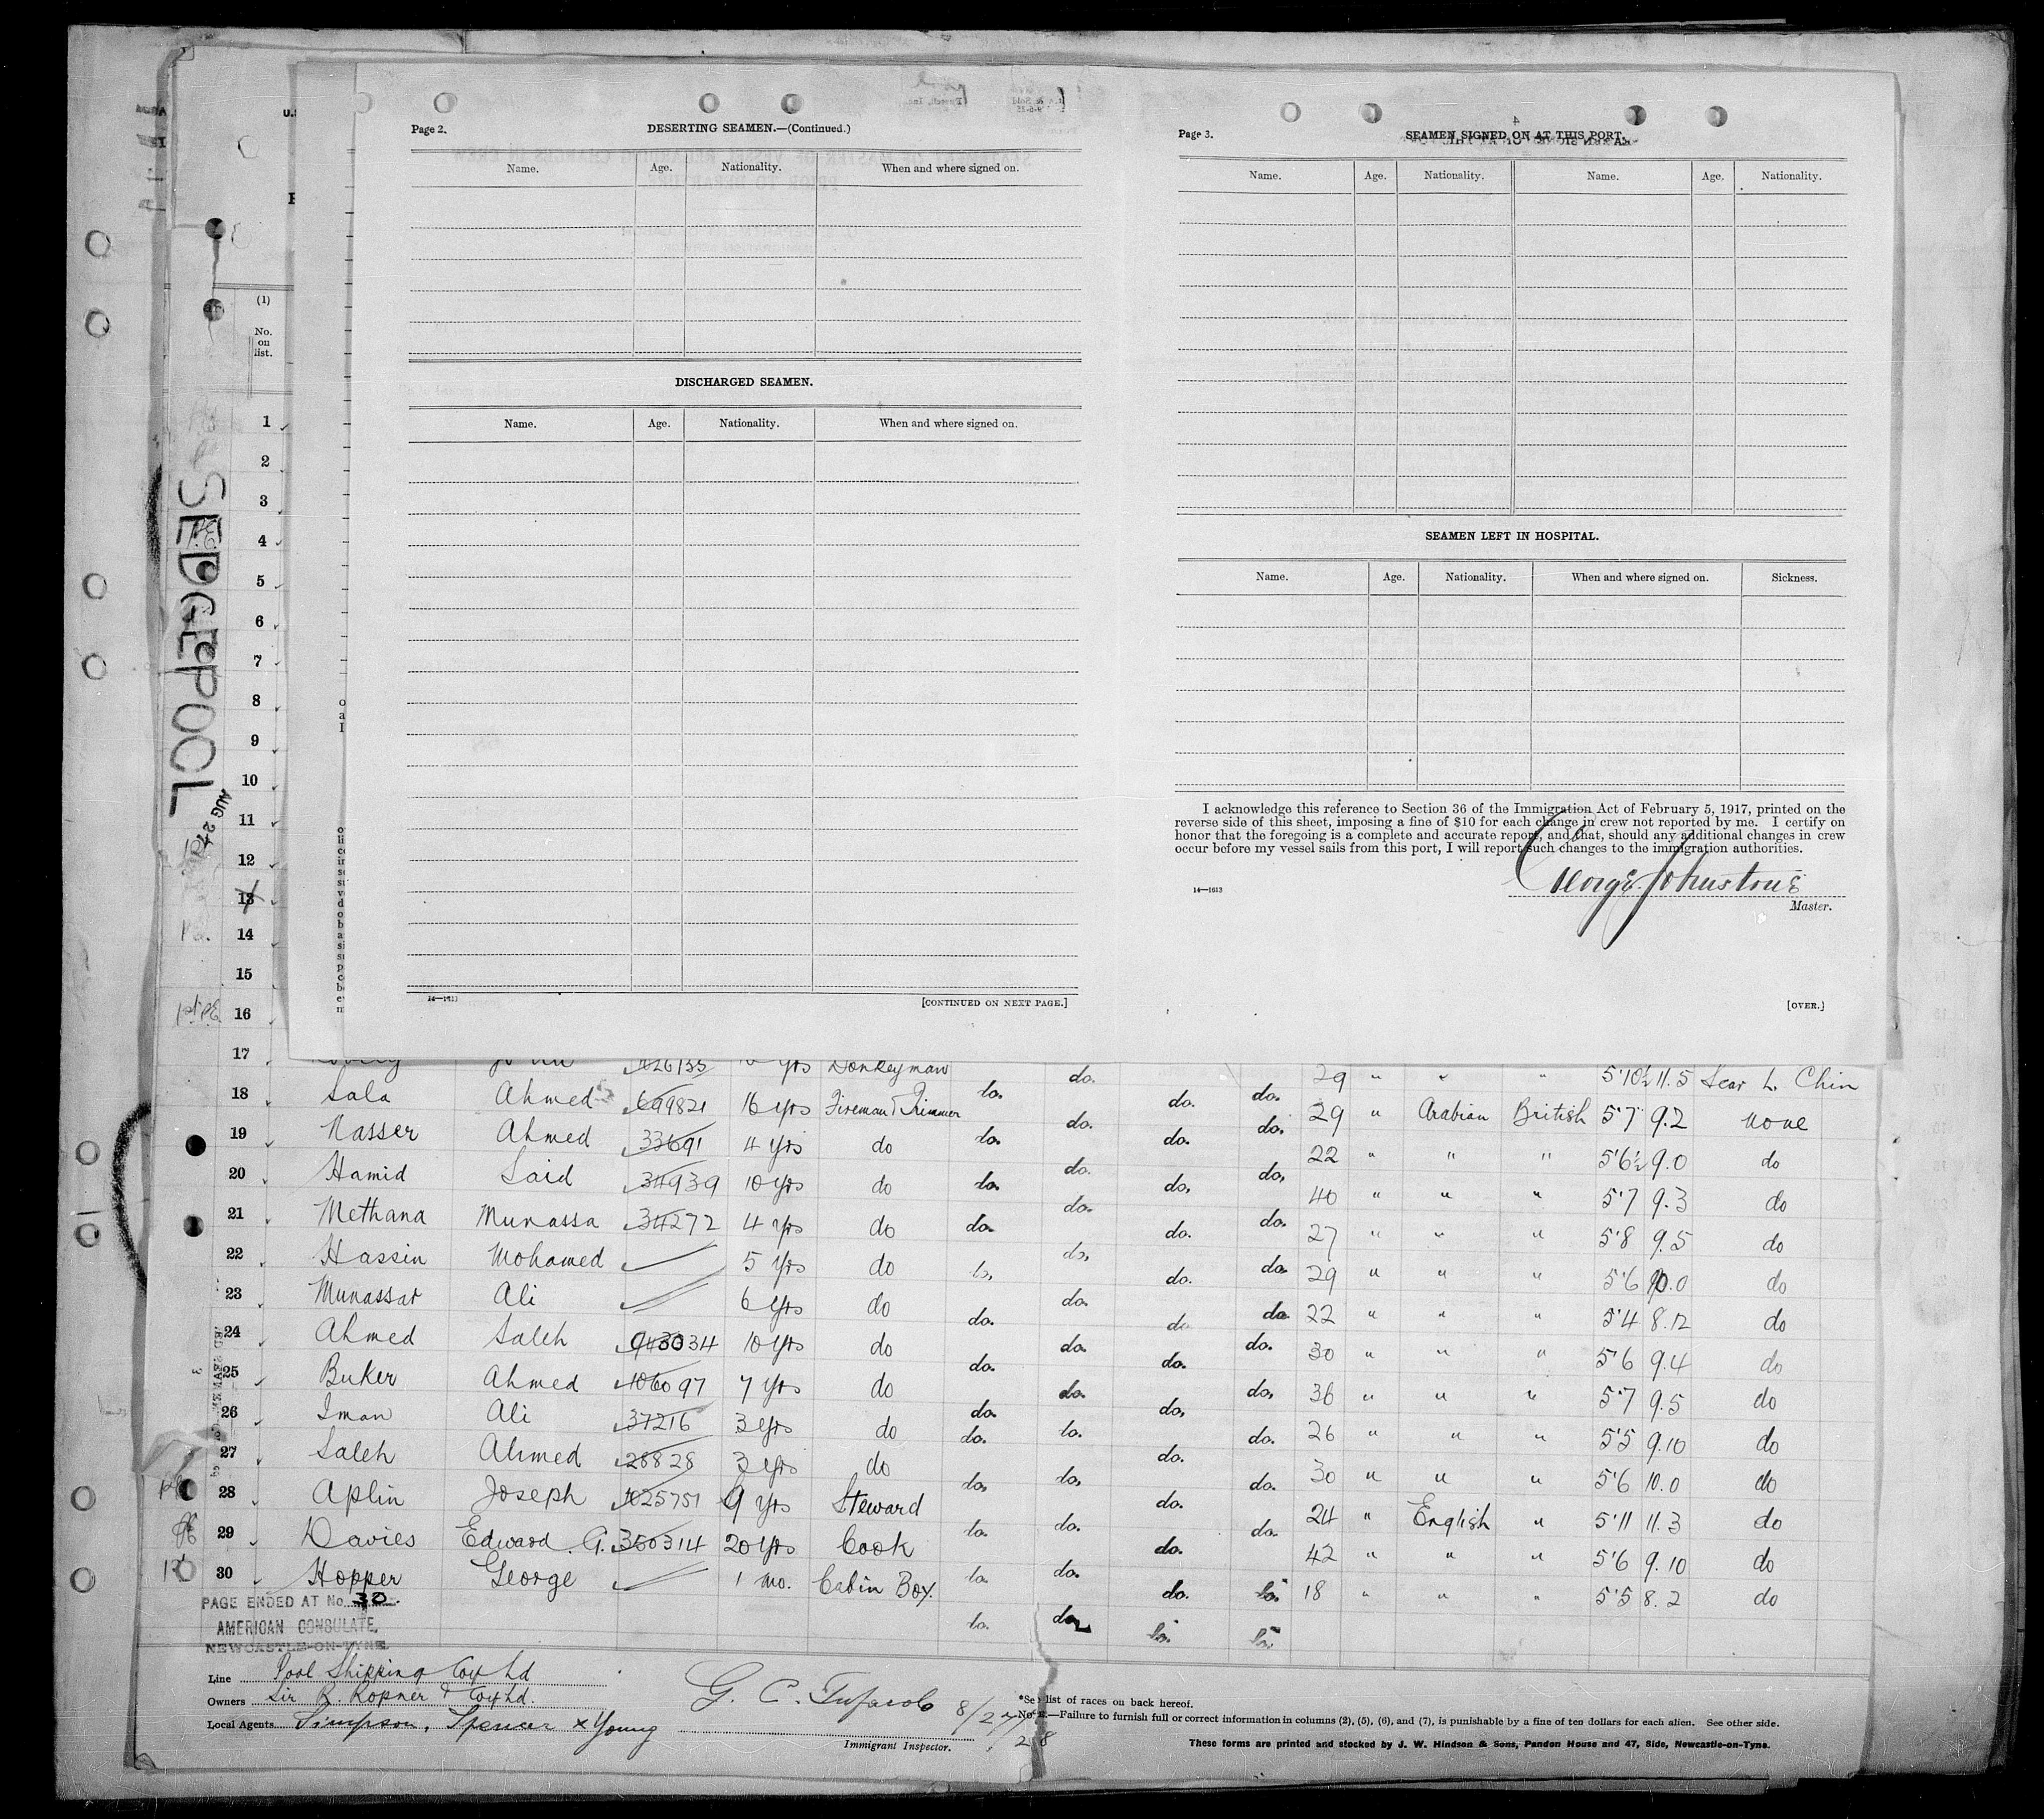 Page 2.
DESERTING SEAMEN.—(Continued.)
Name. Age. Nationality. When and where signed on.
DISCHARGED SEAMEN.
Name. Age. Nationality. When and where signed on.
14—1613
[CONTINUED ON NEXT PAGE.]
Page 3.
SEAMEN SIGNED ON AT THIS PORT.
Name. Age. Nationality. Name. Age. Nationality.
SEAMEN LEFT IN HOSPITAL.
Name. Age. Nationality. When and where signed on. Sickness.
I acknowledge this reference to Section 36 of the Immigration Act of February 5, 1917, printed on the
reverse side of this sheet, imposing a fine of $10 for each change in crew not reported by me. I certify on
honor that the foregoing is a complete and accurate report, and that, should any additional changes in crew
occur before my vessel sails from this port, I will report such changes to the immigration authorities.
George Johnstone
14—1613
Master.
[OVER.]
SEDGEPOOL
AUG 24
(1)
No.
on
list.
1
2
3
4
5
6
7
8
9
10
11
12
13
14
15
16
17 Donkeyman do. 29 " " " 5'10½ 11.5 Scar L. Chin
18 Sala Ahmed 699821 16 yrs Fireman & Trimmer do. do. do. do. 29 " Arabian British 5'7 9.2 none
19 Nasser Ahmed 33691 4 yrs do do. do. do. do. 22 " " " 5'6½ 9.0 do
20 Hamid Said 34939 10 yrs do do. do. do. do. 40 " " " 5'7 9.3 do
21 Methana Munassa 34272 4 yrs do do. do. do. do. 27 " " " 5'8 9.5 do
22 Hassin Mohamed 5 yrs do do. do. do. do. 29 " " " 5'6 10.0 do
23 Munassar Ali 6 yrs do do. do. do. do. 22 " " " 5'4 8.12 do
24 Ahmed Saleh 943034 10 yrs do do. do. do. do. 30 " " " 5'6 9.4 do
25 Buker Ahmed 106097 7 yrs do do. do. do. do. 36 " " " 5'7 9.5 do
26 Iman Ali 37216 3 yrs do do. do. do. do. 26 " " " 5'5 9.10 do
27 Saleh Ahmed 28828 3 yrs do do. do. do. do. 30 " " " 5'6 10.0 do
28 Aplin Joseph 1025751 9 yrs Steward do. do. do. do. 24 " English " 5'11 11.3 do
29 Davies Edward G. 350314 20 yrs Cook do. do. do. do. 42 " " " 5'6 9.10 do
30 Hopper George 1 mo. Cabin Boy. do. do. do. do. 18 " " " 5'5 8.2 do
PAGE ENDED AT No. 30
AMERICAN CONSULATE,
NEWCASTLE-ON-TYNE.
Line Pool Shipping Coy Ltd
Owners Sir R. Ropner & Coy Ltd.
Local Agents Simpson, Spencer & Young
8/27/28
Immigrant Inspector.
*See list of races on back hereof.
Note.—Failure to furnish full or correct information in columns (2), (5), (6), and (7), is punishable by a fine of ten dollars for each alien. See other side.
These forms are printed and stocked by J. W. Hindson & Sons, Pandon House and 47, Side, Newcastle-on-Tyne.